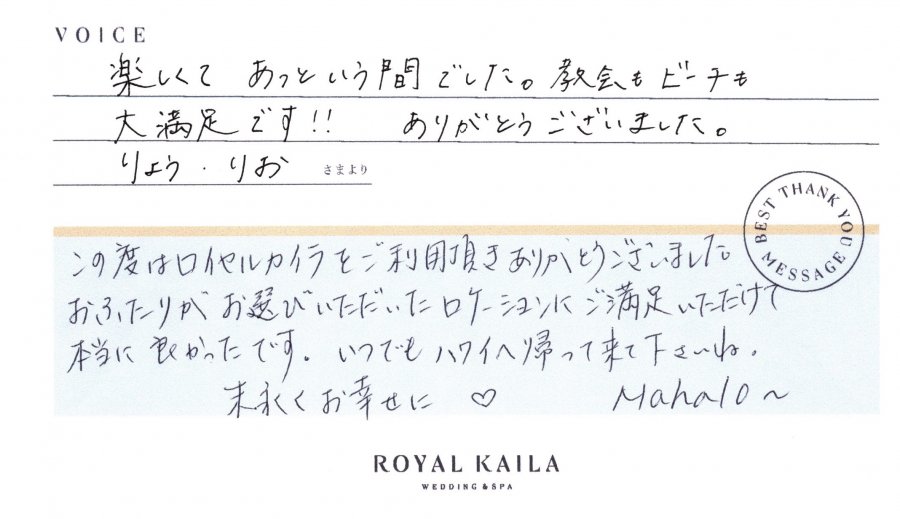 VOICE
楽しくて あっという間でした。教会もビーチも
大満足です!! ありがとうございました。
りょう・りお さまより
BEST THANK YOU MESSAGE
この度はロイヤルカイラをご利用頂きありがとうございました
おふたりがお選びいただいたロケーションにご満足いただけて
本当に良かったです。いつでもハワイへ帰って来て下さいね。
末永くお幸せに ♡ Mahalo~
ROYAL KAILA
WEDDING & SPA